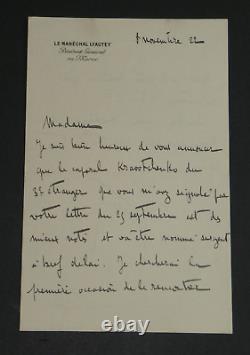 LE MARÉCHAL LYAUTEY
Résident Général
au Maroc
8 novembre 22
Madame
Je suis bien heureux de vous annoncer
que le caporal Kravtchenko du
3e étranger que vous m'avez signalé par
votre lettre du 25 septembre est des
mieux notés et va être nommé sergent
à bref délai. Je chercherai la
première occasion de le remonter